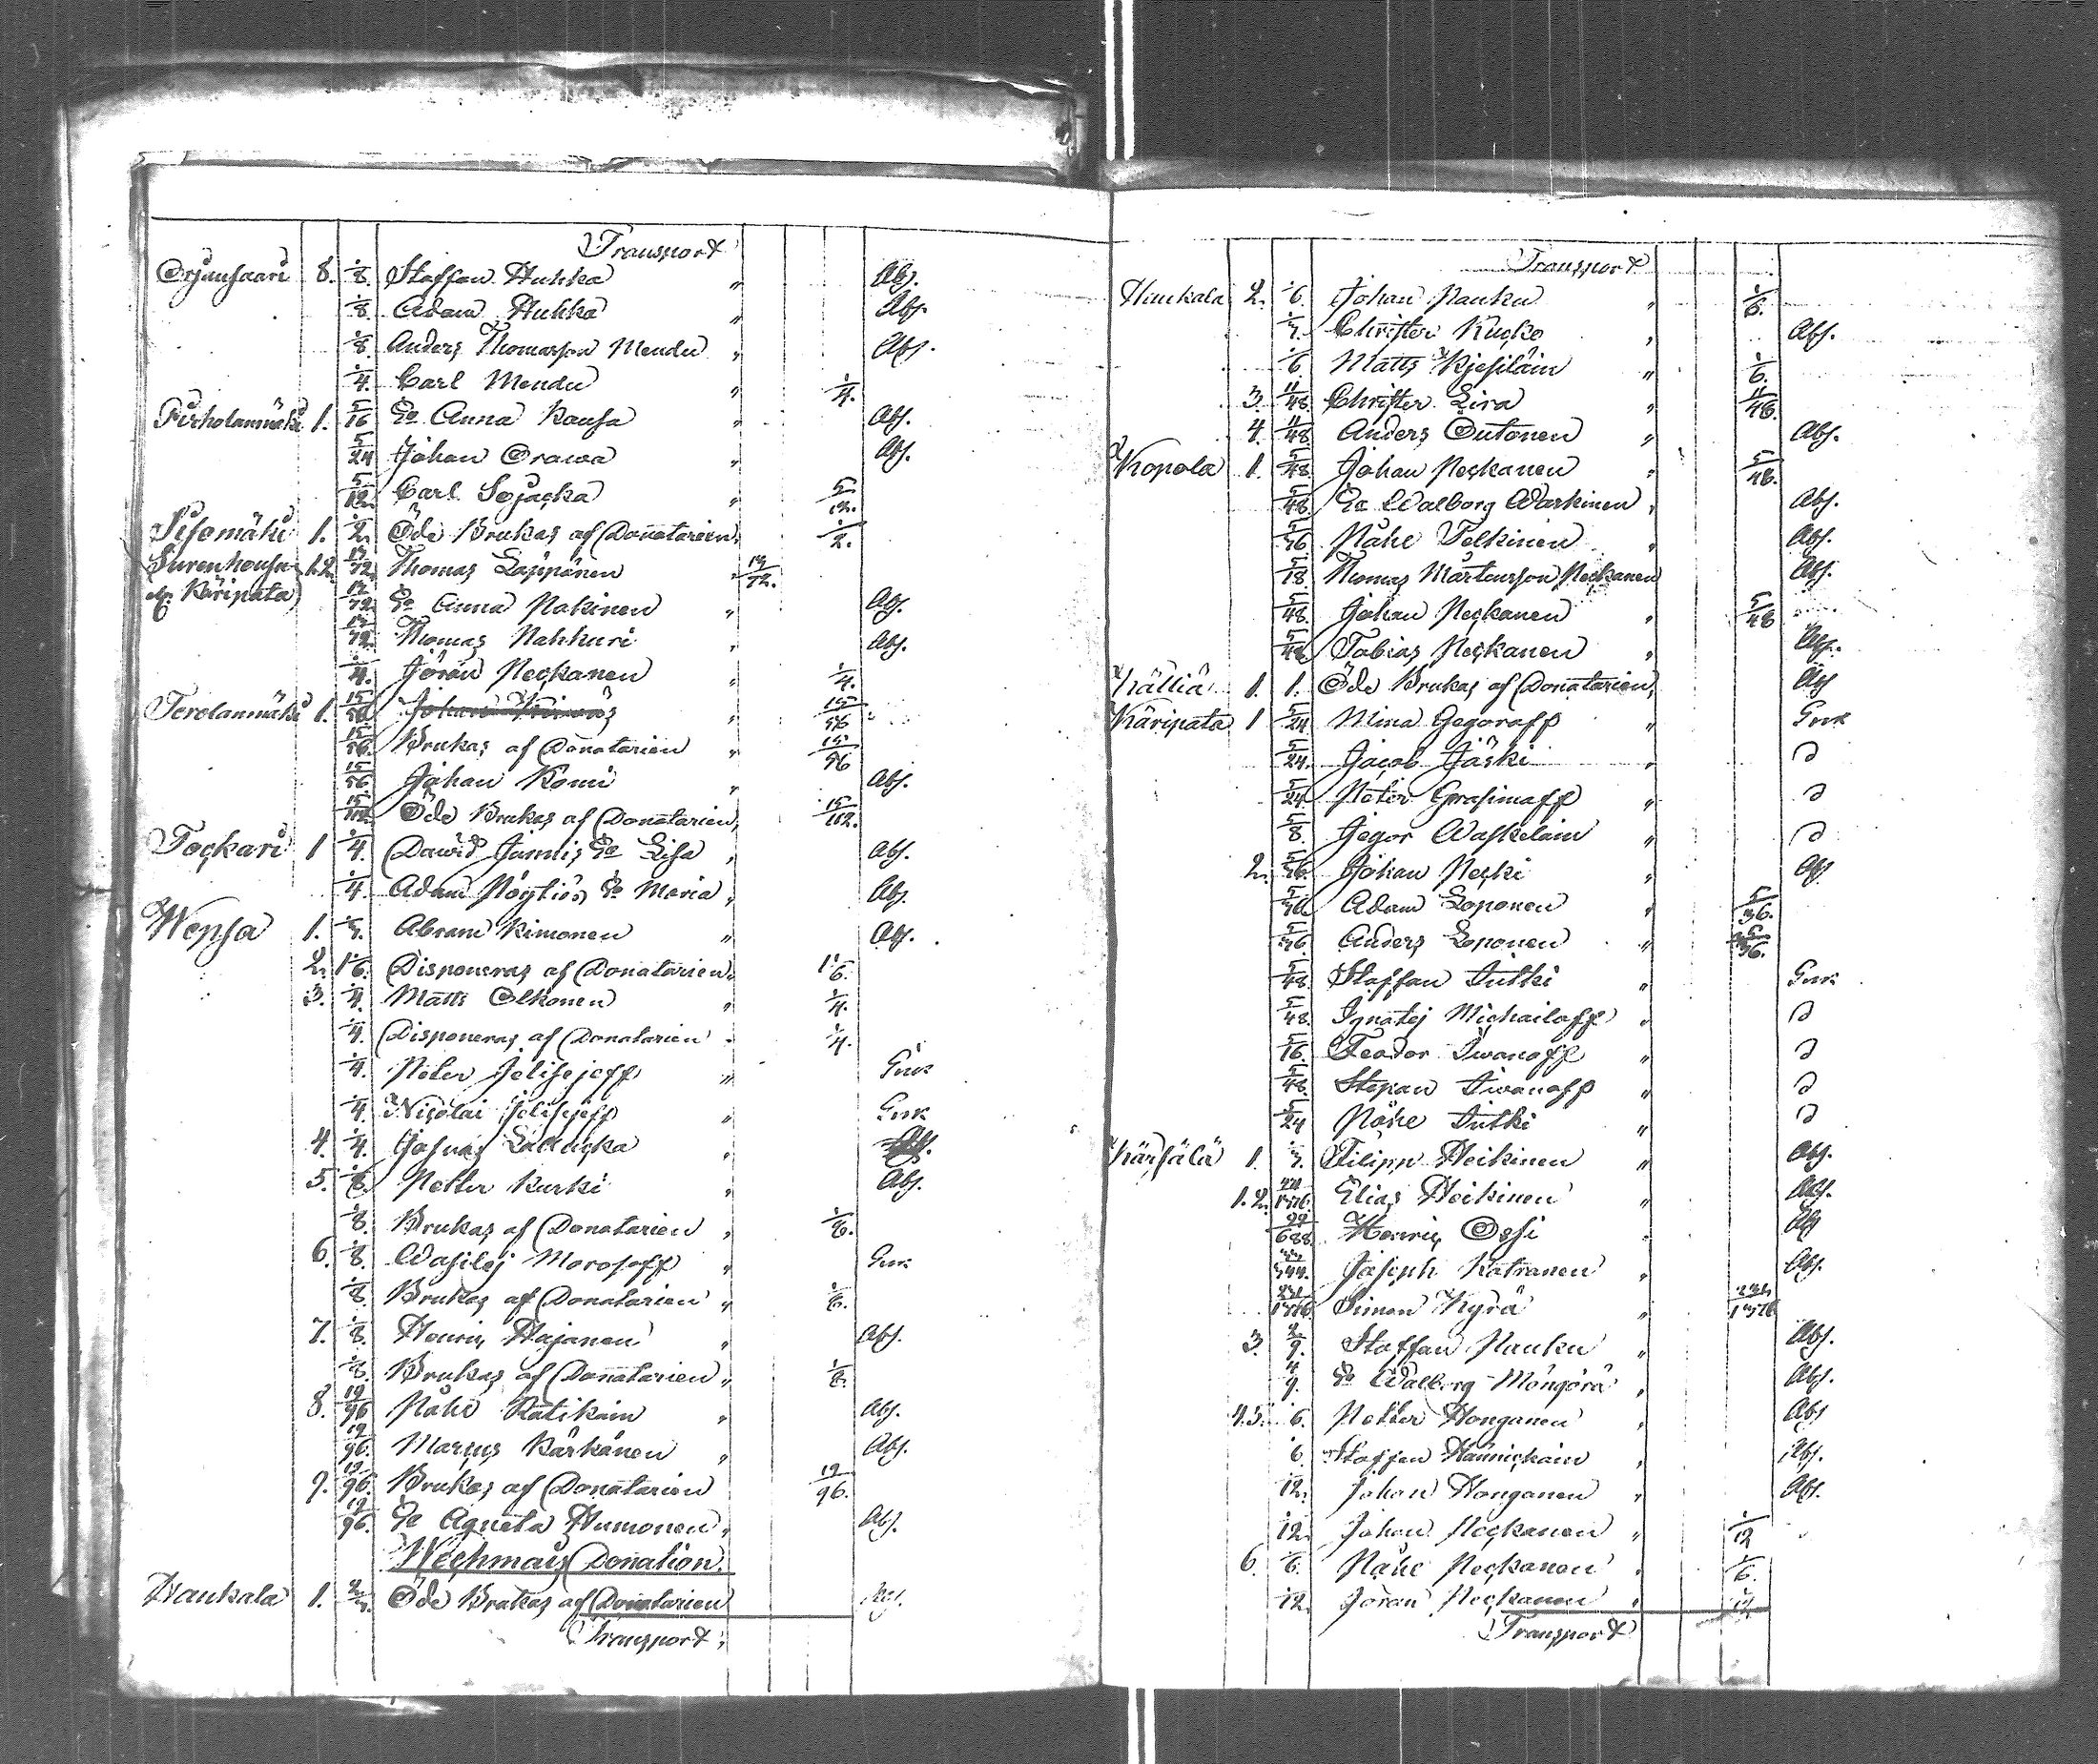 Transport
Orjansaari 8. 1/8. Staffan Huhka " Abs.
1/8. Adam Huhka " Abs.
1/8. Anders Thomasson Mendu " Abs.
1/4. Carl Mendu " 1/4.
Pirholanmäki 1. 5/16 Ea Anna Kausa " Abs.
5/24 Johan Orawa " Abs.
5/12. Carl Sojacka " 5/12.
Sisomäki 1. 1/2. Öde Brukas af Donatarien " 1/2.
Surenhousu 1.2. 17/72. Thomas Läppönen " 17/72.
Käripata 17/72. Ea Anna Pakinen " Abs.
17/72. Thomas Nahkuri " Abs.
1/4. Jöran Peckanen " 1/4.
Terolanmäki 1. 15/56 Johan " 15/56
15/56. Brukas af Donatarien " 15/56
15/56. Johan Komi " Abs.
15/112. Öde Brukas af Donatarien " 15/112.
Tockari 1 1/4. Dawid Jamtis Ea Lisa " Abs.
1/4. Adam Pöytiös Ea Maria " Abs.
Wepsa 1. 1/3. Abram Kimonen " Abs.
2. 1 1/6. Disponeras af Donatarien " 1 1/6.
3. 1/4. Matts Olkonen " 1/4.
1/4. Disponeras af Donatarien " 1/4.
1/4. Peter Jelisejeff " Grek
1/4. Nicolai Jelisejeff " Grek
4. 1/4. Josuas Lallucka " Abs.
5. 1/8. Petter Kurki " Abs.
1/8. Brukas af Donatarien " 1/8.
6. 1/8. Wasilej Morosoff " Grek
1/8. Brukas af Donatarien " 1/8.
7. 1/8. Henric Hajanen " Abs.
1/8. Brukas af Donatarien " 1/8.
8. 19/96 Påhl Ratikain " Abs.
19/96. Marcus Kärkänen " Abs.
9. 19/96. Brukas af Donatarien 19/96.
19/96. Ea Agneta Humonen " Abs.
Wechmais Donation.
Haukala 1. 2/3. Öde Brukas af Donatarien Abs.
Transport
Transport
Haukala 2. 1/6. Johan Pauku " 1/6.
1/3. Christer Kucko " Abs.
1/6. Matts Kjesiläin " 1/6.
3. 11/48. Christer Lira " 11/48.
4. 11/48. Anders Outonen " Abs.
Kopola 1. 5/48. Johan Peckanen " 5/48.
5/48. Ea Walborg Warkinen " Abs.
5/36 Påhl Telkinen " Abs.
5/18. Thomas Mårtensson Peckanen Abs.
5/48. Johan Peckanen " 5/48
5/48. Tobias Peckanen " Abs.
Källiä 1. 1. Öde Brukas af Donatarien " Abs
Käripata 1 5/24 Mina Gegoroff " Grek
5/24. Jacob Jäski " D
5/24. Peter Grasimoff " D
5/8. Jegor Waskelain " D
2. 5/36. Johan Pecki " Abs
5/36 Adam Loponen " 5/36.
5/36 Anders Loponen " 5/36.
5/48. Staffan Jutki " Grek
5/48. Ignatej Michailoff " D
5/16. Feodor Iwanoff " D
5/48. Stepan Iwanoff " D
5/24 Påhl Jutki " D
Kärsälä 1. 1/3. Filipp Heikinen " Abs.
1.2. Elias Heikinen " Abs.
Henric Ossi " Abs
Joseph Katranen " Abs.
Simon Kyrä "
3. 2/9. Staffan Pauku " Abs.
4/9. Ea Walborg Möngörä " Abs.
4.5. 1/6. Petter Honganen " Abs
1/6 Staffan Hännickäin " Abs.
1/12. Johan Honganen " Abs.
1/12. Johan Peckanen " 1/12
6. 1/6. Påhl Peckanen " 1/6.
1/12. Jöran Peckanen " 1/12
Transport